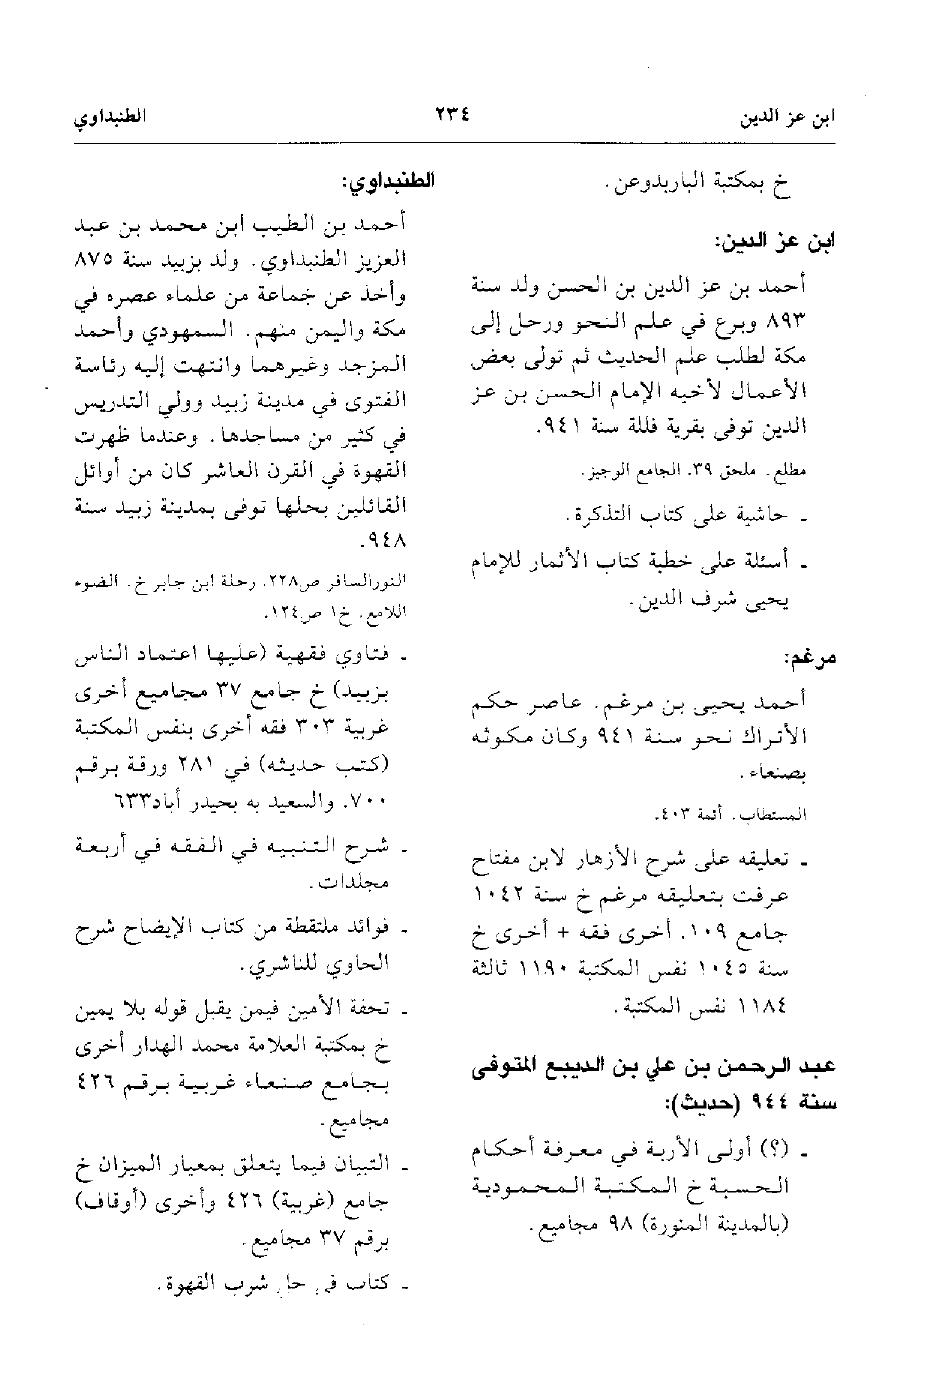 ابن عز الدين
٢٣٤
الطنبداوي
خ بمكتبة الباريدوعن.
ابن عز الدين:
أحمد بن عز الدين بن الحسن ولد سنة
٨٩٣ وبرع في علم النحو ورحل إلى
مكة لطلب علم الحديث ثم تولى بعض
الأعمال لأخيه الإمام الحسن بن عز
الدين توفى بقرية فللة سنة ٩٤١.
مطلع. ملحق ٣٩. الجامع الوجيز.
ـ حاشية على كتاب التذكرة.
ـ أسئلة على خطبة كتاب الأثمار للإمام
يحيى شرف الدين.
مرغم:
أحمد يحيى بن مرغم. عاصر حكم
الأتراك نحو سنة ٩٤١ وكان مكوثه
بصنعاء.
المستطاب. أئمة ٤٠٣.
ـ تعليقه على شرح الأزهار لابن مفتاح
عرفت بتعليقه مرغم خ سنة ١٠٤٢
جامع ١٠٩. أخرى فقه + أخرى خ
سنة ١٠٤٥ نفس المكتبة ١١٩٠ ثالثة
١١٨٤ نفس المكتبة.
عبد الرحمن بن علي بن الديبع المتوفى
سنة ٩٤٤ (حديث):
ـ (؟) أولى الأربة في معرفة أحكام
الحسبة خ المكتبة المحمودية
(بالمدينة المنورة) ٩٨ مجاميع.
الطنبداوي:
أحمد بن الطيب ابن محمد بن عبد
العزيز الطنبداوي. ولد بزبيد سنة ٨٧٥
وأخذ عن جماعة من علماء عصره في
مكة واليمن منهم. السمهودي وأحمد
المزجد وغيرهما وانتهت إليه رئاسة
الفتوى في مدينة زبيد وولي التدريس
في كثير من مساجدها. وعندما ظهرت
القهوة في القرن العاشر كان من أوائل
القائلين بحلها توفى بمدينة زبيد سنة
٩٤٨.
النورالسافر ص٢٢٨. رحلة ابن جابر خ. الضوء
اللامع. خ١ ص١٢٤.
ـ فتاوي فقهية (عليها اعتماد الناس
بزبيد) خ جامع ٣٧ مجاميع أخرى
غربية ٣٠٣ فقه أخرى بنفس المكتبة
(كتب حديثه) في ٢٨١ ورقة برقم
٧٠٠. والسعيد به بحيدر أباد٦٣٣
ـ شرح التنبيه في الفقه في أربعة
مجلدات.
ـ فوائد ملتقطة من كتاب الإيضاح شرح
الحاوي للناشري.
ـ تحفة الأمين فيمن يقبل قوله بلا يمين
خ بمكتبة العلامة محمد الهدار أخرى
بجامع صنعاء غربية برقم ٤٢٦
مجاميع.
ـ التبيان فيما يتعلق بمعيار الميزان خ
جامع (غربية) ٤٢٦ وأخرى (أوقاف)
برقم ٣٧ مجاميع.
ـ كتاب في حل شرب القهوة.